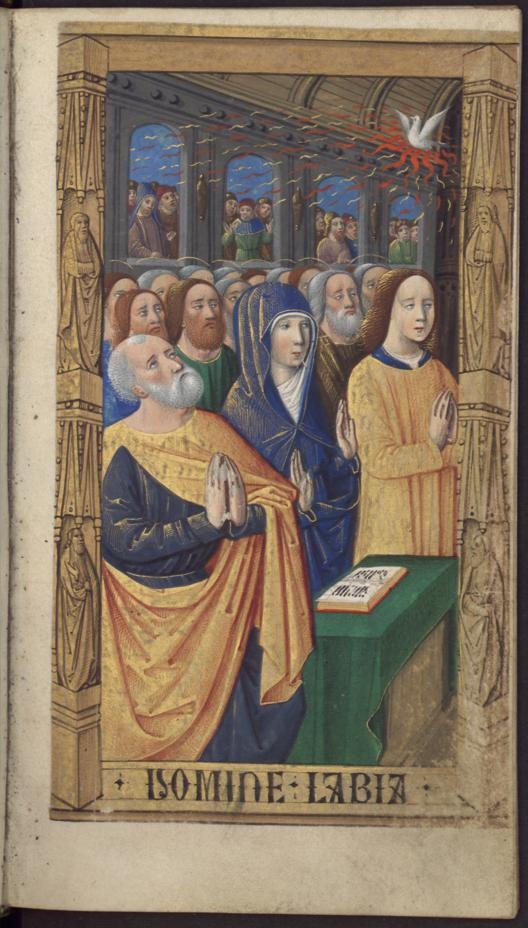 DOMINE · LABIA ·